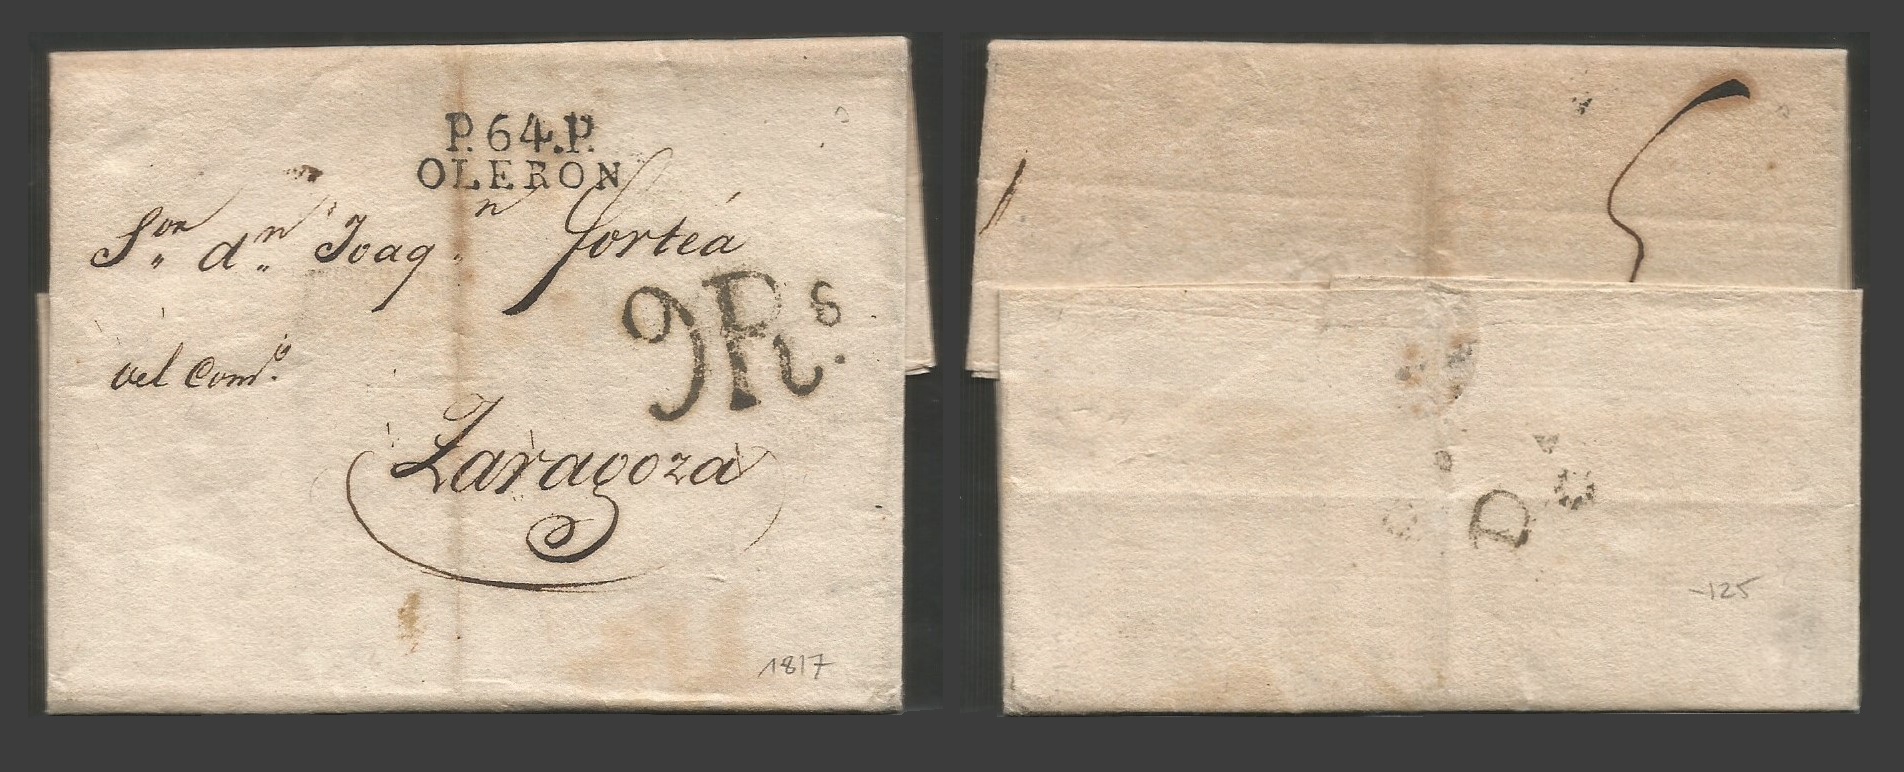 P.64.P.
OLERON
Sor,, dn,, Joaqn. fortéa
9Rs.
vel Como.
Zaragoza
1817
D
-125